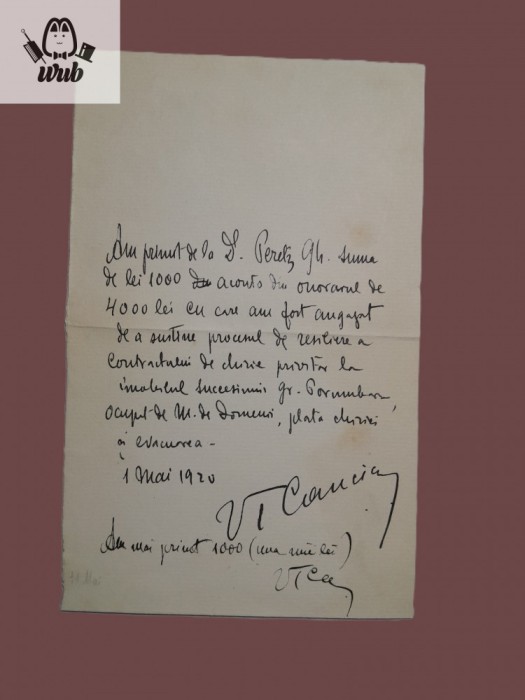 wub
Am primit de la Dl. Peretz Gh. suma
de lei 1000 aconto din onorarul de
4000 lei cu care am fost angajat
de a susține procesul de reziliere a
contractului de chirie privitor la
imobilul succesiunii Gr.
ocupat de M. de Domenii, plata chiriei
și evacuarea -
1 Mai 1920
Am mai primit 1000 (una mie lei)